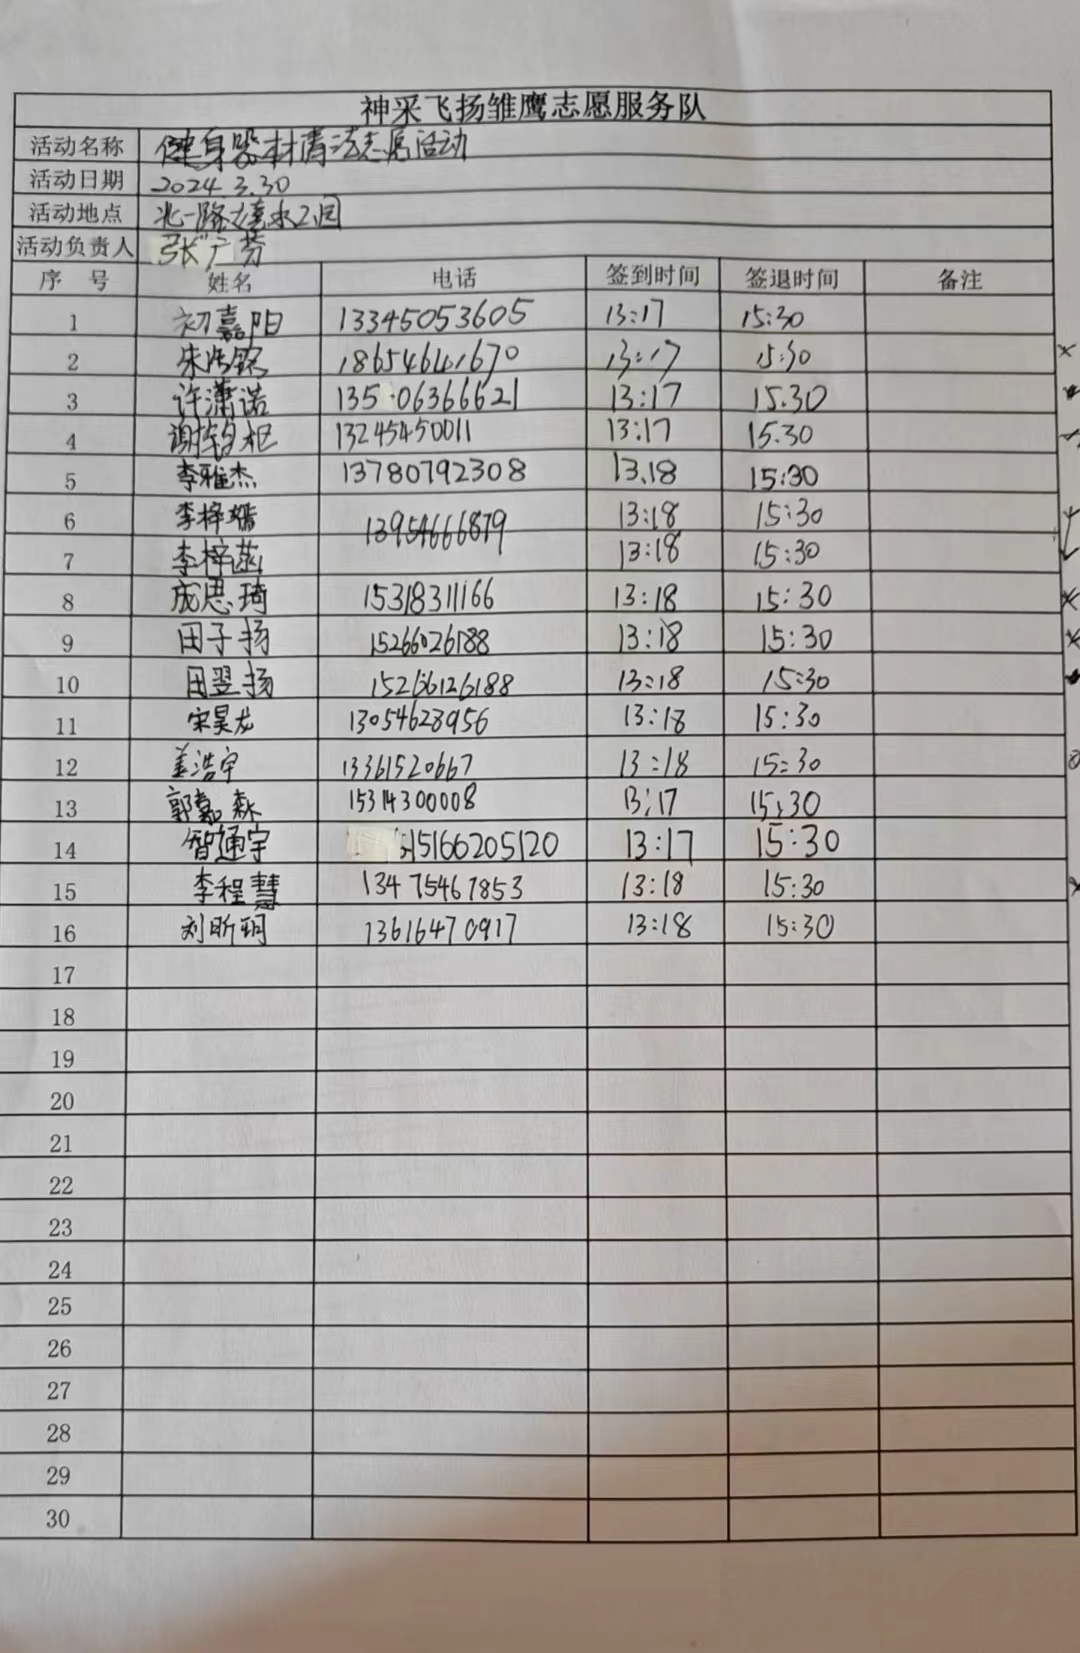 神采飞扬雏鹰志愿服务队
活动名称 健身器材清洁志愿活动
活动日期 2024.3.30
活动地点 北一路
活动负责人 张广芳
序 号 姓名 电话 签到时间 签退时间 备注
1 初嘉阳 13345053605 13:17 15:30
2 朱浩铭 18654641670 13:17 15:30
3 许潇诺 13506366621 13:17 15.30
4 谢 13245450011 13:17 15.30
5 李雅杰 13780792308 13.18 15:30
6 李梓嫣 13954666879 13:18 15:30
7 李梓菡 13:18 15:30
8 庞思琦 15318311166 13:18 15:30
9 田子扬 15266026188 13:18 15:30
10 田翌扬 15266126188 13:18 15:30
11 宋昊龙 13054628956 13:18 15:30
12 姜浩宇 13361520667 13:18 15:30
13 郭嘉森 15314300008 13:17 15:30
14 智通宇 15166205120 13:17 15:30
15 李程慧 13475467853 13:18 15:30
16 刘昕玥 13616470917 13:18 15:30
17
18
19
20
21
22
23
24
25
26
27
28
29
30